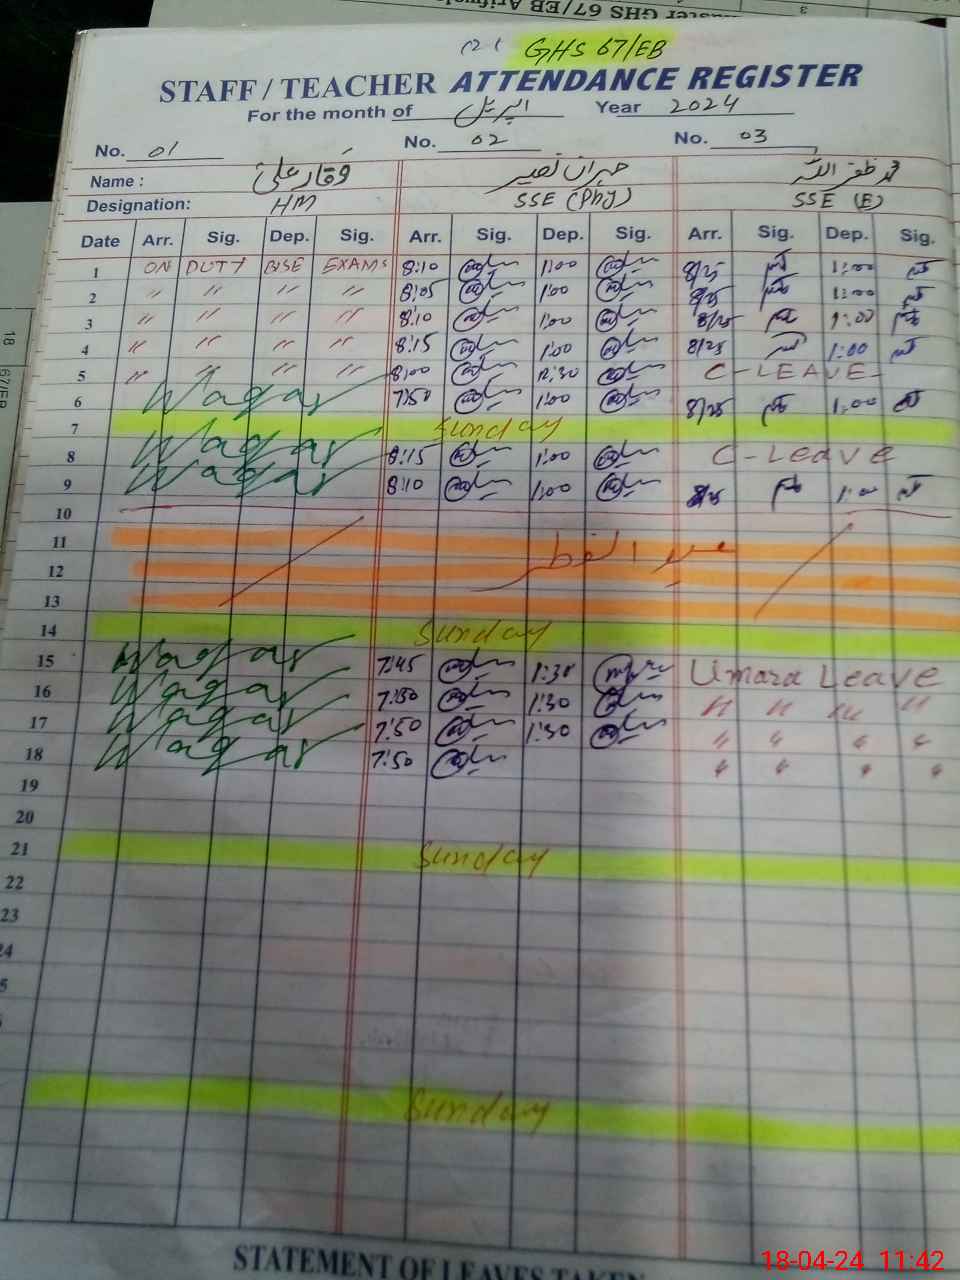 GHS 67/EB
STAFF / TEACHER ATTENDANCE REGISTER
For the month of اپریل Year 2024
No. 01 No. 02 No. 03
Name : وقار علی جبران نصیر محمد ظفر اللہ
Designation: HM SSE (Phy) SSE (E)
Date Arr. Sig. Dep. Sig. Arr. Sig. Dep. Sig. Arr. Sig. Dep. Sig.
1 ON DUTY BISE EXAMS 8:10 1:00 8/25 1:00
2 " " " " 8:05 1:00 8/25 1:00
3 " " " " 8:10 1:00 8/25 1:00
4 " " " " 8:15 1:00 8/25 1:00
5 " " " " 8:00 12:30 C-LEAVE
6 Waqar 7:50 1:00 8/25 1:00
7 Sunday
8 Waqar 8:15 1:00 C-Leave
9 Waqar 8:10 1:00 8/25 1:00
10
11 عید الفطر
12
13
14 Sunday
15 Waqar 7:45 1:30 Umara Leave
16 Waqar 7:50 1:30 " " " "
17 Waqar 7:50 1:30 " " " "
18 Waqar 7:50 " " " "
19
20
21 Sunday
22
23
24
Sunday
STATEMENT OF LEAVES TAKEN
18-04-24 11:42